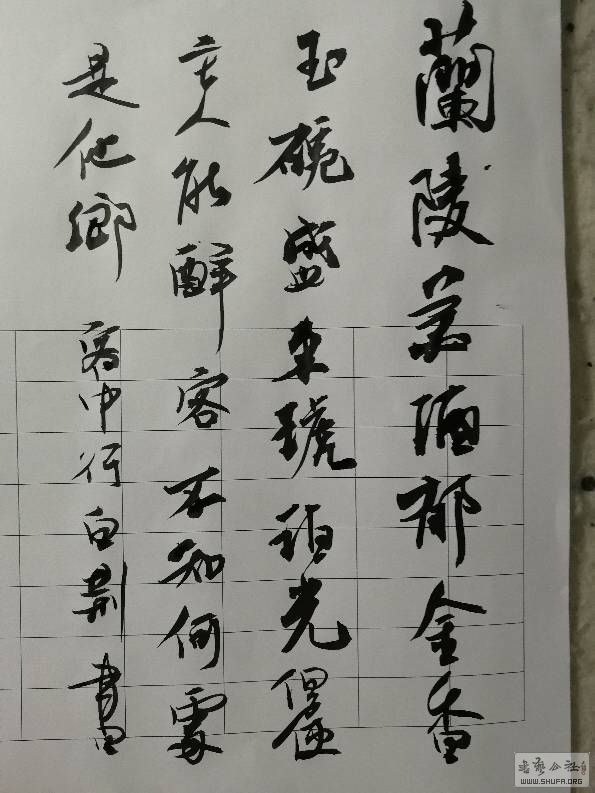 蘭陵美酒郁金香
玉碗盛来琥珀光但使
主人能醉客不知何處
是他鄉 客中行白荆書
书艺公社
WWW.SHUFA.ORG